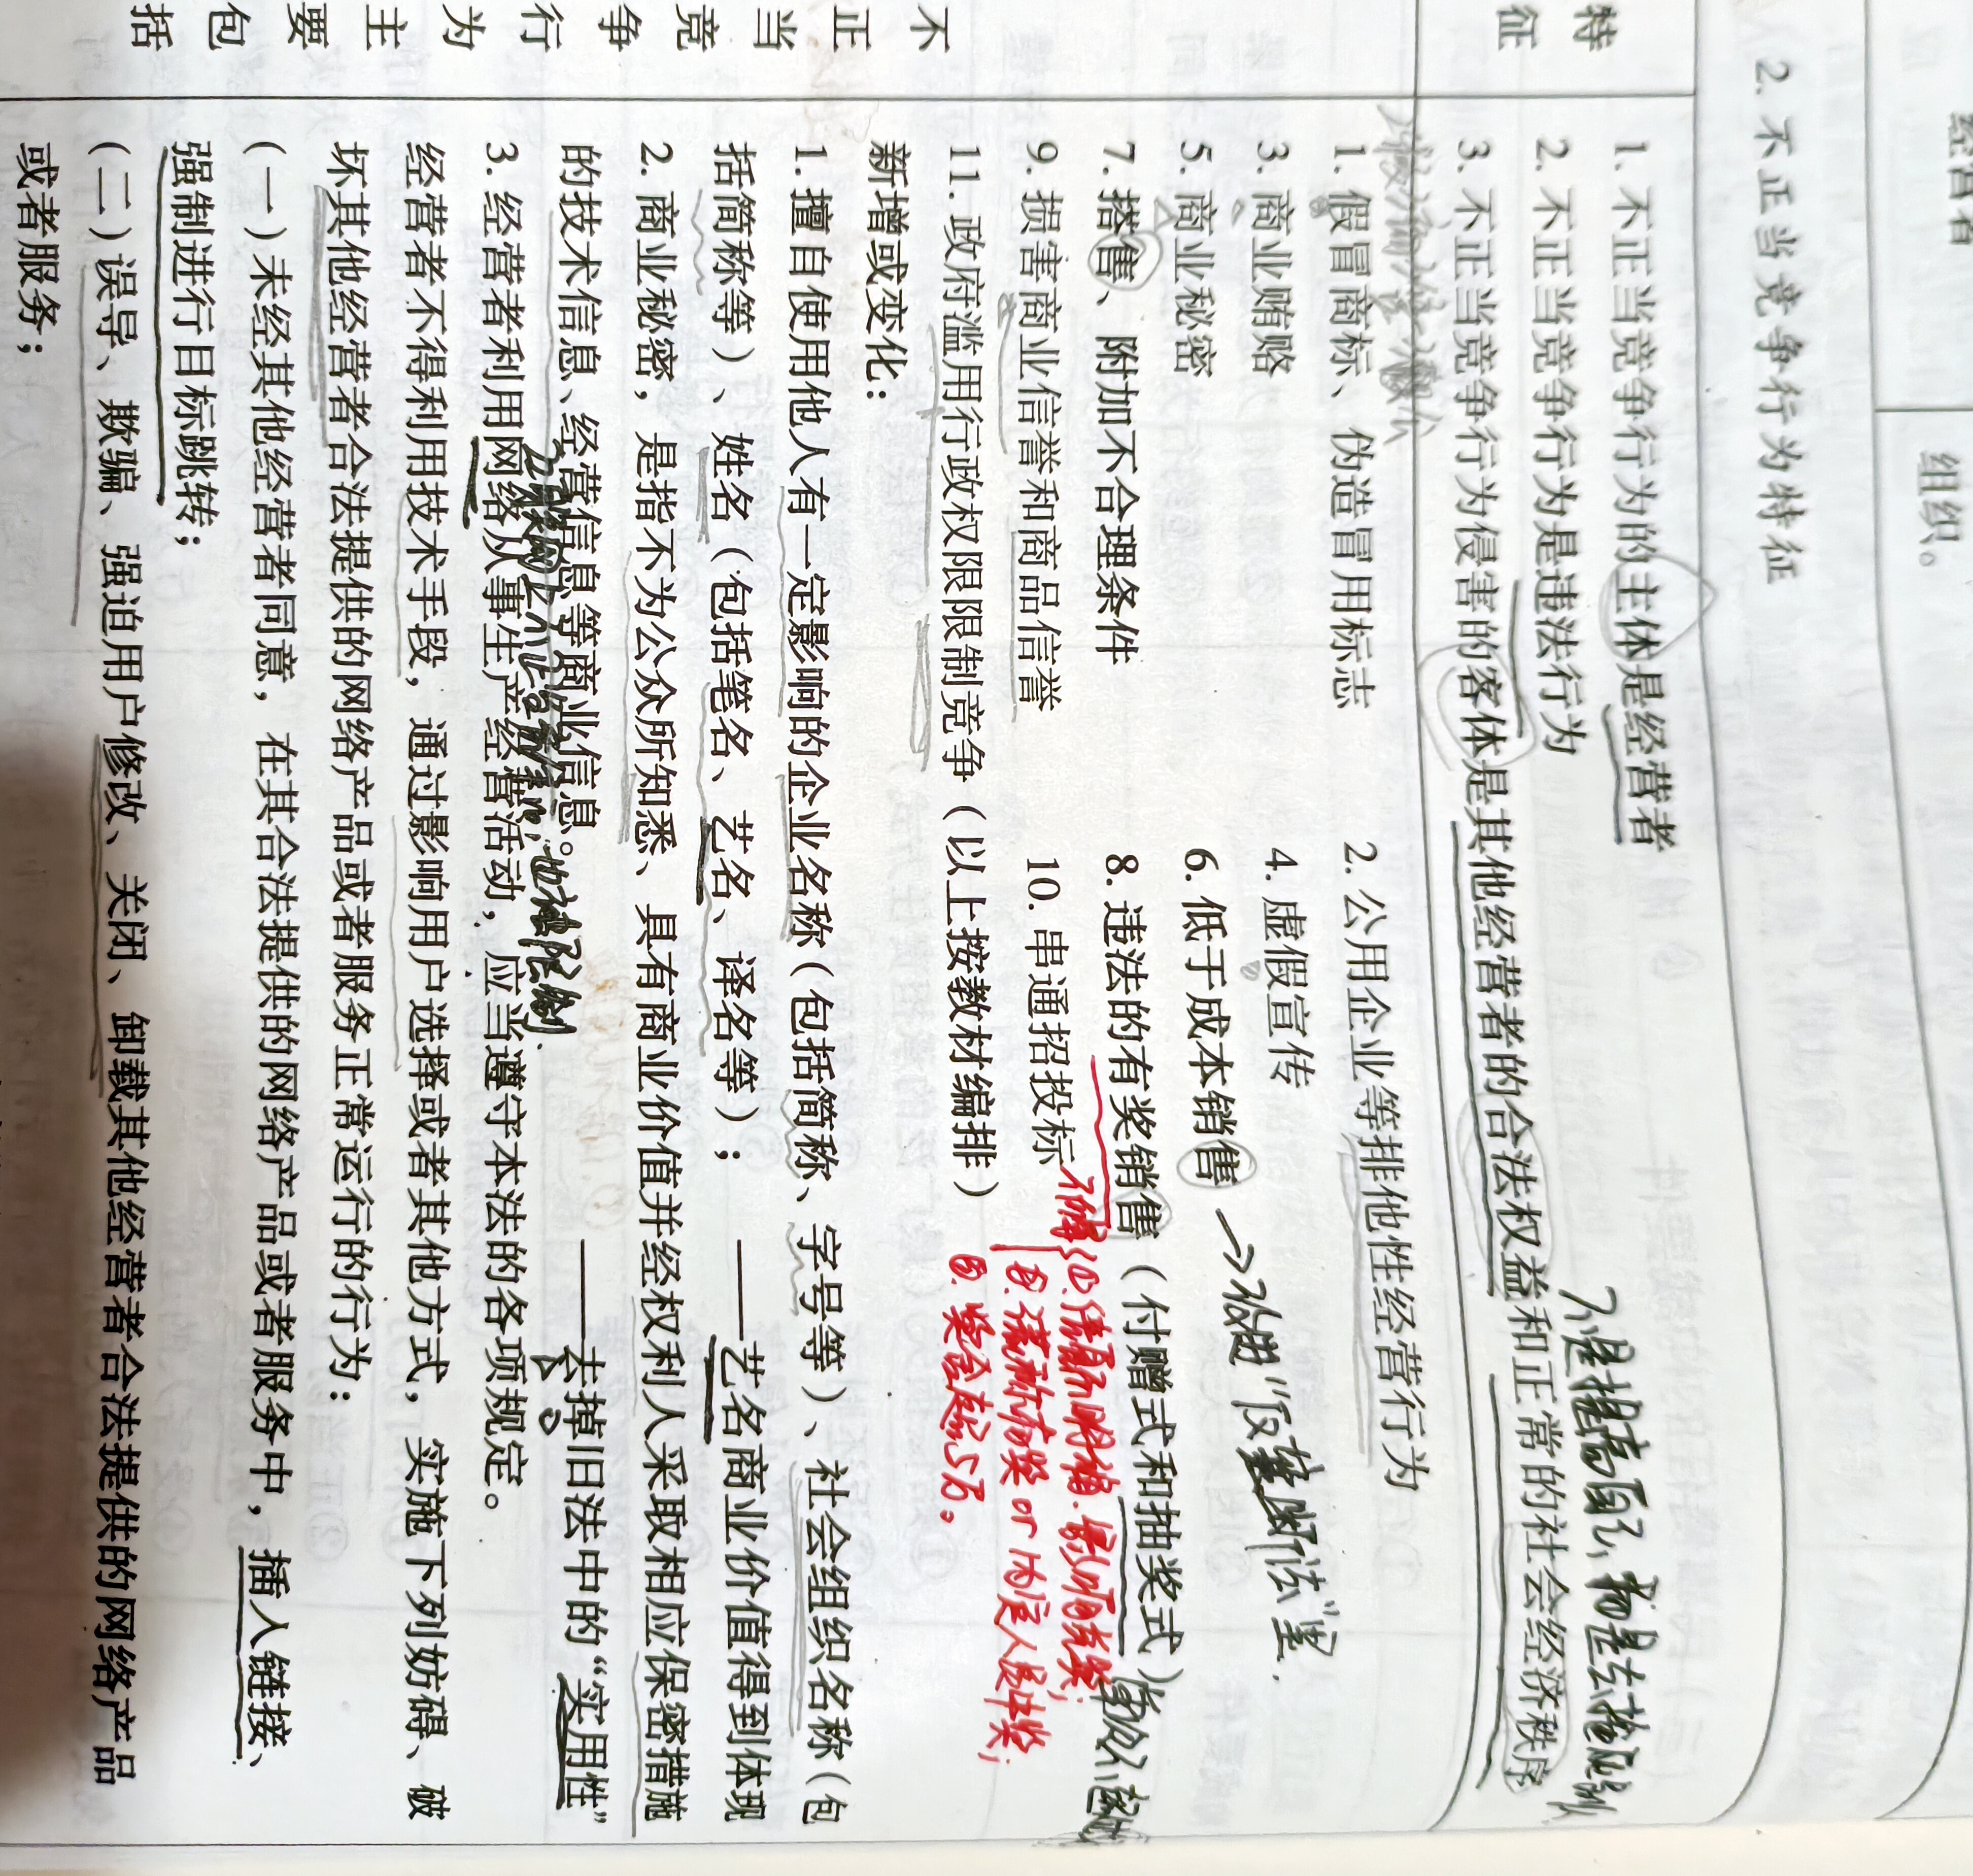 经营者
组织。
2. 不正当竞争行为特征
特征
1. 不正当竞争行为的主体是经营者
2. 不正当竞争行为是违法行为
不是提高自己,而是去
3. 不正当竞争行为侵害的客体是其他经营者的合法权益和正常的社会经济秩序
不正当竞争行为主要包括
1. 假冒商标、伪造冒用标志
2. 公用企业等排他性经营行为
3. 商业贿赂
4. 虚假宣传
5. 商业秘密
6. 低于成本销售
“反垄断法”里.
7. 搭售、附加不合理条件
8. 违法的有奖销售(付赠式和抽奖式)
①信息不明确.影响兑奖;
9. 损害商业信誉和商品信誉
10. 串通招投标
②谎称有奖 or 内定人员中奖;
11. 政府滥用行政权限限制竞争(以上按教材编排)
③.奖金超5万。
新增或变化:
1. 擅自使用他人有一定影响的企业名称(包括简称、字号等)、社会组织名称(包
括简称等)、姓名(包括笔名、艺名、译名等); ——艺名商业价值得到体现
2. 商业秘密,是指不为公众所知悉、具有商业价值并经权利人采取相应保密措施
的技术信息、经营信息等商业信息。 ——去掉旧法中的“实用性”
也被限制.
3. 经营者利用网络从事生产经营活动,应当遵守本法的各项规定。
经营者不得利用技术手段,通过影响用户选择或者其他方式,实施下列妨碍、破
坏其他经营者合法提供的网络产品或者服务正常运行的行为:
(一)未经其他经营者同意,在其合法提供的网络产品或者服务中,插入链接、
强制进行目标跳转;
(二)误导、欺骗、强迫用户修改、关闭、卸载其他经营者合法提供的网络产品
或者服务;